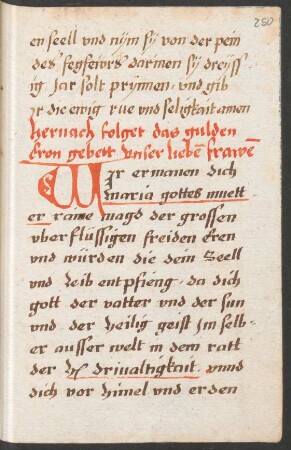 250
en seell vnd nÿm sÿ von der pein
des fegfeivrs darinen sÿ dreÿss
ig Jar solt prÿnnen, vnd gib
Jr die ewig rue vnd seligkait amen
Hernach folget das gulden
kron gebett vnser lieben frawen
Wir ermanen dich
maria gottes muett
er raine magd der grossen
vberflüssigen freiden Eren
vnd würden die dein Seell
vnd leib entpfieng, da dich
gott der vatter vnd der sun
vnd der heilig geist Jm selb-
er ausser welt in dem ratt
der driualtigkait, vnnd
dich vor himel vnd erden